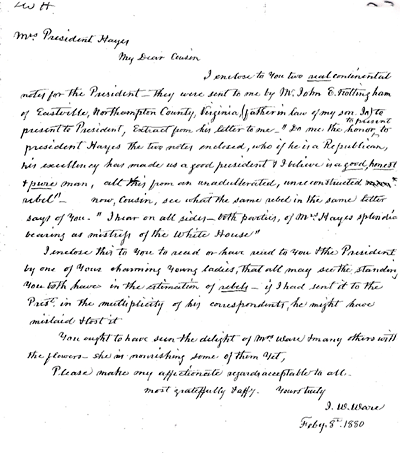 Mrs President Hayes
My Dear Cousin
I enclose to you two real continental
notes for the President – they were sent to me by Mr. John E. Nottingham
of Eastville, Northampton County, Virginia, (father in law of my son Jn) to
present to President, Extract from his letter to me – "Do me the honor, to present to
president Hayes the two notes enclosed, who if he is a Republican,
his excellency has made us a good president & I believe is a good, honest
& pure man, all this from an unadulterated, unreconstructed
rebel" – now, Cousin, see what the same rebel in the same letter
says of you. "I hear on all sides – both parties, of Mrs Hayes splendid
bearing as mistress of the White House"
I enclose this to you to read or have read to you & the President
by one of your charming young ladies, that all may see the standing
you both have in the estimation of rebels – if I had sent it to the
Prest. in the multiplicity of his correspondents, he might have
mislaid & lost it
You ought to have seen the delight of Mrs Ware & many others with
the flowers – she is nourishing some of them yet,
Please make my affectionate regards acceptable to all.
most gratefully & affy. Yours truly
J. W. Ware
Feby. 8th. 1880